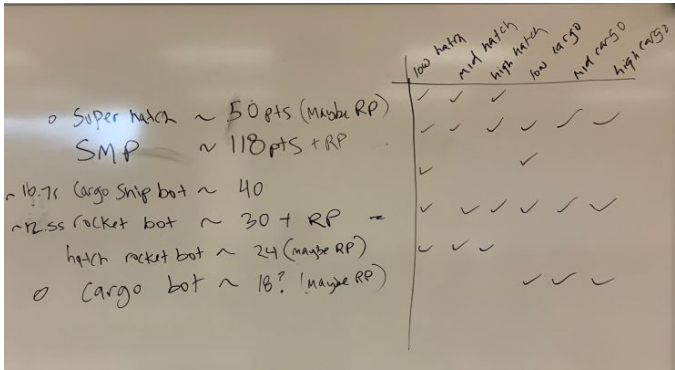 low hatch mid hatch high hatch low cargo mid cargo high cargo
o Super hatch ~ 50 pts (Maybe RP) ✓ ✓ ✓
SMP ~ 118 pts + RP ✓ ✓ ✓ ✓ ✓ ✓
~ 16.7s Cargo Ship bot ~ 40 ✓ ✓
~12.5s rocket bot ~ 30 + RP - ✓ ✓ ✓ ✓ ✓ ✓
hatch rocket bot ~ 24 (maybe RP) ✓ ✓ ✓
o Cargo bot ~ 18? (Maybe RP) ✓ ✓ ✓